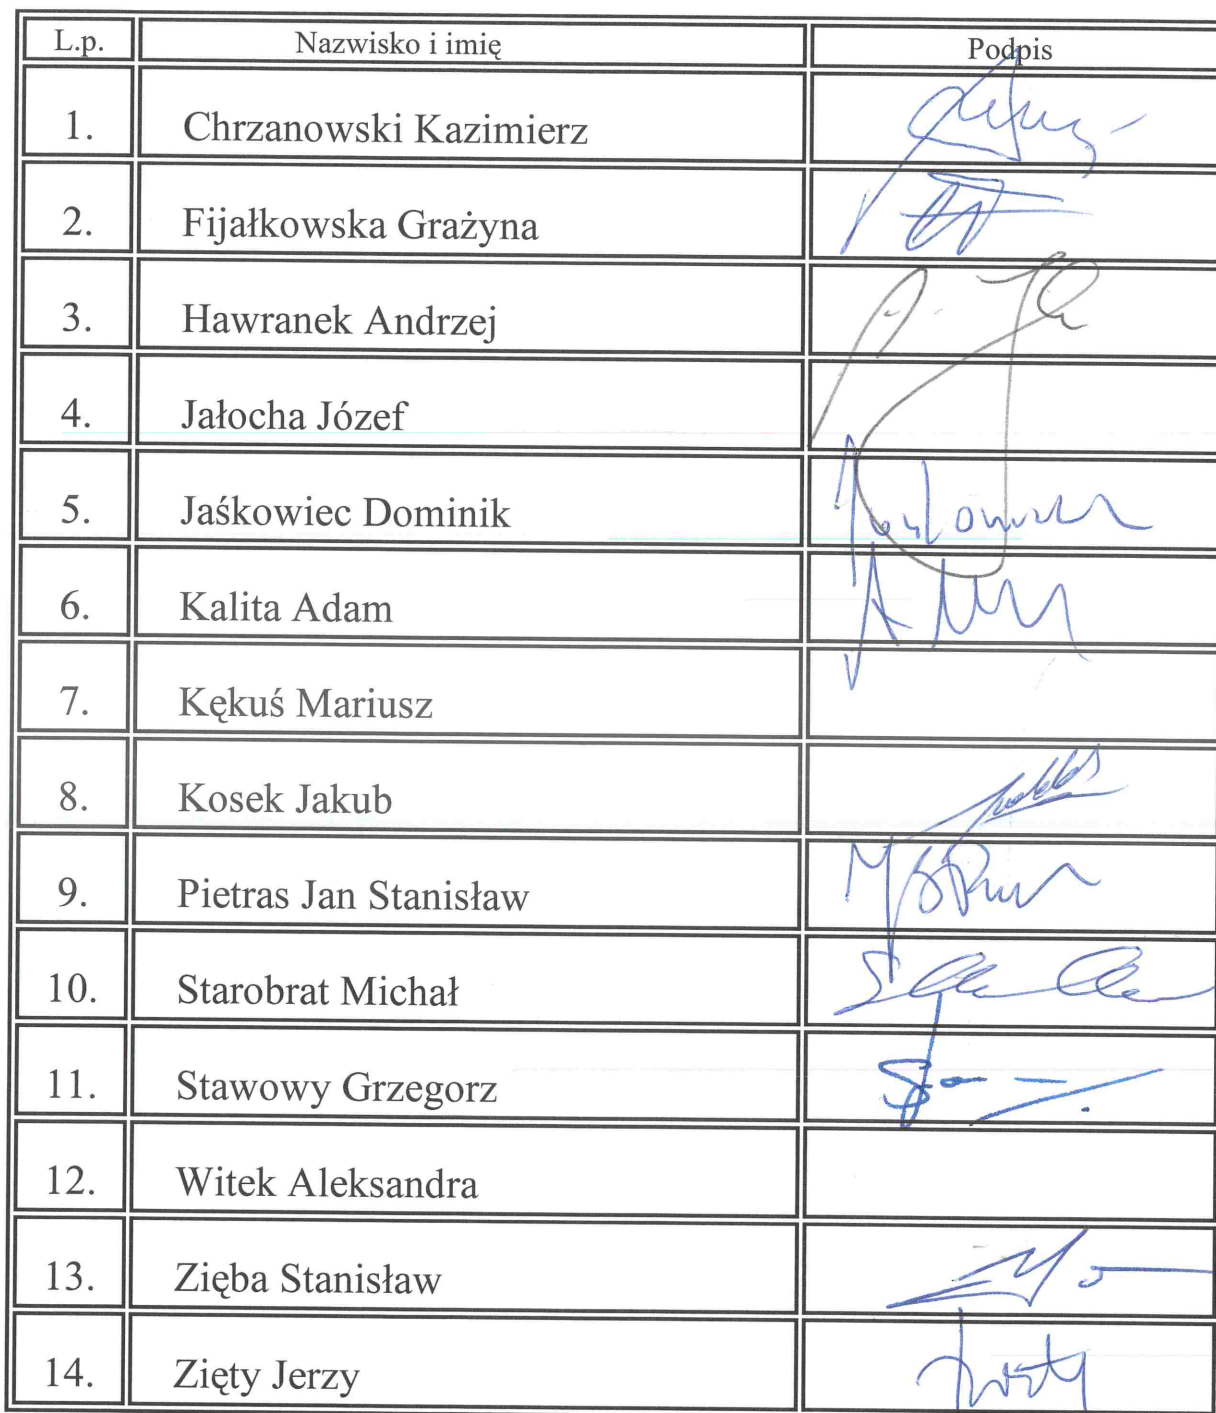 L.p. Nazwisko i imię Podpis
1. Chrzanowski Kazimierz
2. Fijałkowska Grażyna
3. Hawranek Andrzej
4. Jałocha Józef
5. Jaśkowiec Dominik
6. Kalita Adam
7. Kękuś Mariusz
8. Kosek Jakub
9. Pietras Jan Stanisław
10. Starobrat Michał
11. Stawowy Grzegorz
12. Witek Aleksandra
13. Zięba Stanisław
14. Zięty Jerzy